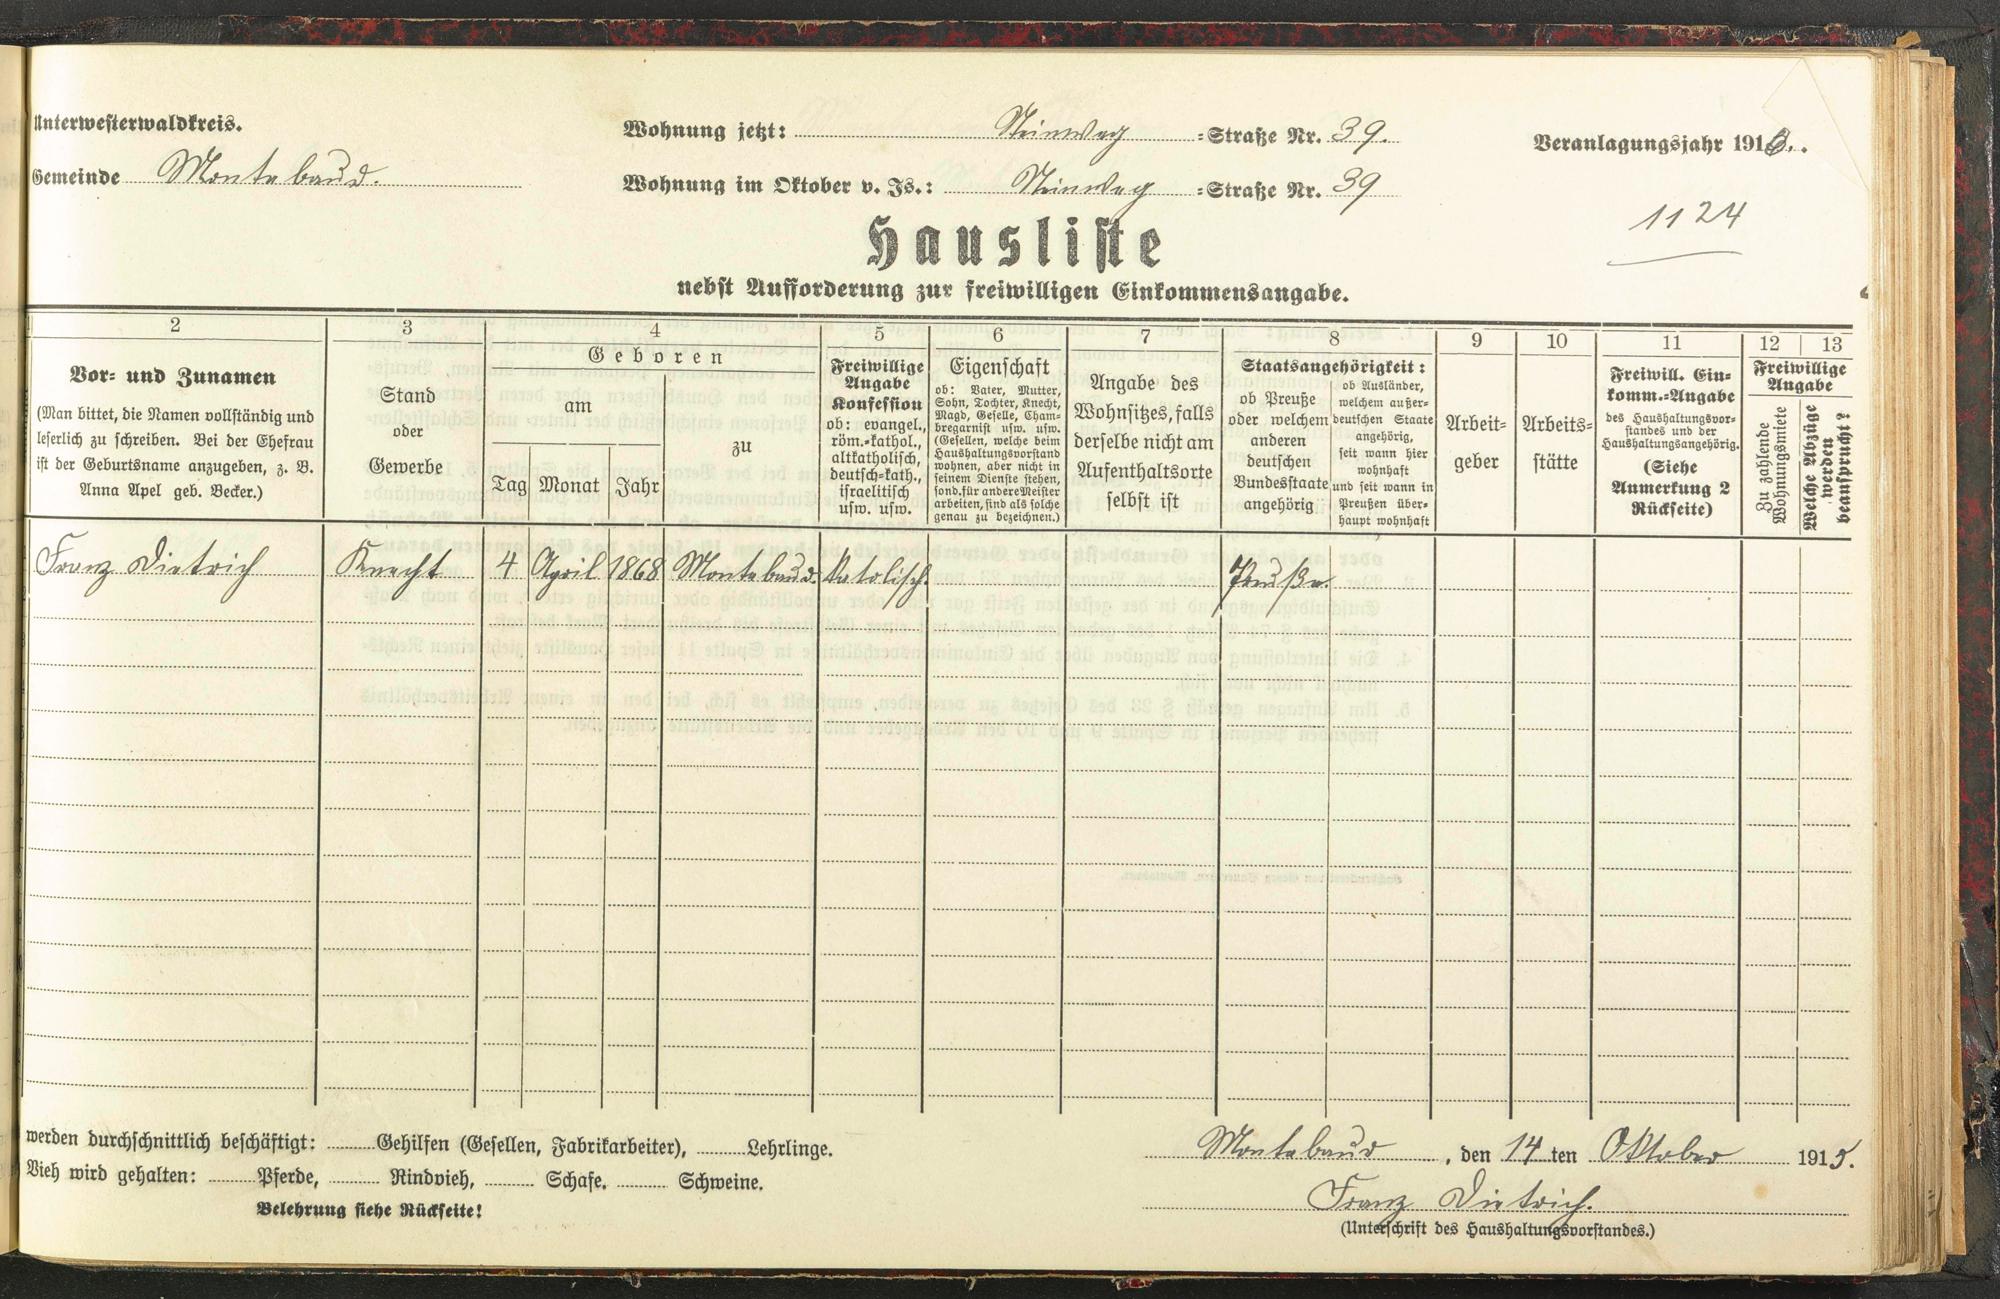 Unterwesterwaldkreis.
Gemeinde Montabaur.
Wohnung jetzt: Steinweg =Straße Nr. 39.
Wohnung im Oktober v. Js.: Steinweg =Straße Nr. 39
Veranlagungsjahr 1916.
1124
Hausliste
nebst Aufforderung zur freiwilligen Einkommensangabe.
2
Vor= und Zunamen
(Man bittet, die Namen vollständig und
leserlich zu schreiben. Bei der Ehefrau
ist der Geburtsname anzugeben, z. B.
Anna Apel geb. Becker.)
3
Stand
oder
Gewerbe
4
Geboren
am
Tag Monat Jahr
zu
5
Freiwillige
Angabe
Konfession
ob: evangel.,
röm.=kathol.,
altkatholisch,
deutsch=kath.,
israelitisch
usw. usw.
6
Eigenschaft
ob: Vater, Mutter,
Sohn, Tochter, Knecht,
Magd, Geselle, Cham=
bregarnist usw. usw.
(Gesellen, welche beim
Haushaltungsvorstand
wohnen, aber nicht in
seinem Dienste stehen,
sond. für andere Meister
arbeiten, sind als solche
genau zu bezeichnen.)
7
Angabe des
Wohnsitzes, falls
derselbe nicht am
Aufenthaltsorte
selbst ist
8
Staatsangehörigkeit:
ob Preuße
oder welchem
anderen
deutschen
Bundesstaate
angehörig
ob Ausländer,
welchem außer=
deutschen Staate
angehörig,
seit wann hier
wohnhaft
und seit wann in
Preußen über=
haupt wohnhaft
9
Arbeit=
geber
10
Arbeits=
stätte
11
Freiwill. Ein=
komm.=Angabe
des Haushaltungsvor=
standes und der
Haushaltungsangehörig.
(Siehe
Anmerkung 2
Rückseite)
12 13
Freiwillige
Angabe
Zu zahlende
Wohnungsmiete
Welche Abzüge
werden
beansprucht?
Franz Dietrich Knecht 4 April 1868 Montabaur. Katolisch. Preuße.
werden durchschnittlich beschäftigt: Gehilfen (Gesellen, Fabrikarbeiter), Lehrlinge.
Vieh wird gehalten: Pferde, Rindvieh, Schafe. Schweine.
Belehrung siehe Rückseite!
Montabaur, den 14 ten Oktober 1915.
Franz Dietrich.
(Unterschrift des Haushaltungsvorstandes.)